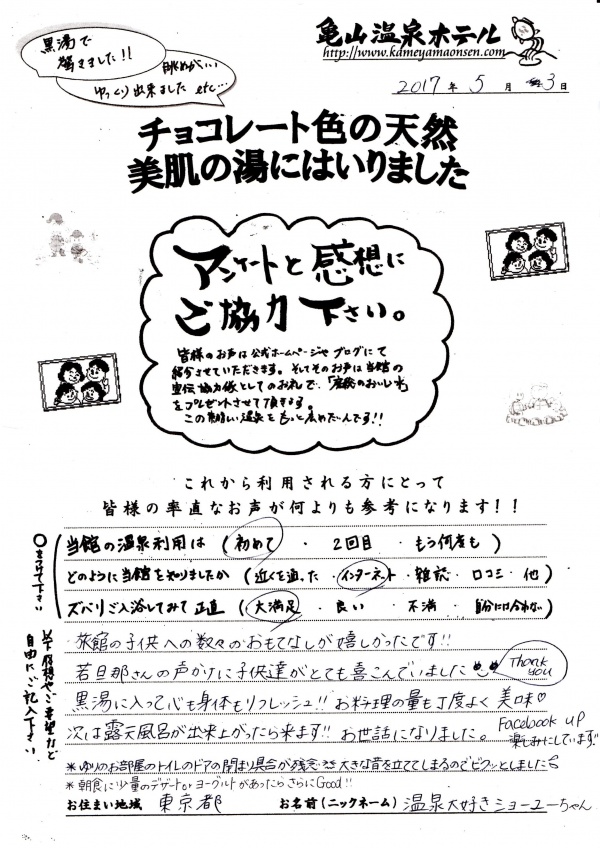 亀山温泉ホテル
http://www.kameyamaonsen.com
黒湯で
驚きました!!
眺めがいい
ゆっくり出来ました etc…
2017年 5月 3日
チョコレート色の天然
美肌の湯にはいりました
アンケートと感想に
ご協力下さい。
皆様のお声は公式ホームページやブログにて
紹介させていただきます。そしてそのお声は当館の
宣伝協力係としてのお礼で、「産総のおいしい米」
をプレゼントさせて頂きます。
この素晴しい温泉をもっと広めたいんです!!
これから利用される方にとって
皆様の率直なお声が何よりも参考になります!!
○をつけて下さい
当館の温泉利用は (初めて ・ 2回目 ・ もう何度も)
どのように当館を知りましたか (近くを通った ・ インターネット ・ 雑誌 ・ 口コミ ・ 他)
ズバリご入浴してみて正直 (大満足 ・ 良い ・ 不満 ・ 自分には合わない)
以下感想やご要望など
自由にご記入下さい
旅館の子供への数々のおもてなしが嬉しかったです!!
若旦那さんの声かけに子供達がとても喜こんでいました Thank you
黒湯に入って心も身体もリフレッシュ!! お料理の量も丁度よく美味♡
次は露天風呂が出来上がったら来ます!! お世話になりました。 Facebook UP
楽しみにしています!
*ゆりのお部屋のトイレのドアの閉まり具合が残念 大きな音を立ててしまるのでビクッとしました
*朝食に少量のデザート or ヨーグルトがあったらさらにGood!!
お住まい地域 東京都 お名前(ニックネーム) 温泉大好きショーユーちゃん